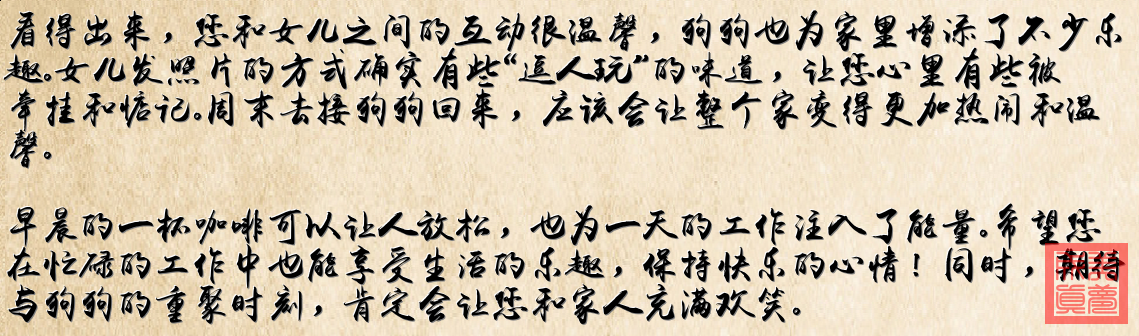 看得出来，您和女儿之间的互动很温馨，狗狗也为家里增添了不少乐
趣。女儿发照片的方式确实有些“逗人玩”的味道，让您心里有些被
牵挂和惦记。周末去接狗狗回来，应该会让整个家变得更加热闹和温
馨。
早晨的一杯咖啡可以让人放松，也为一天的工作注入了能量。希望您
在忙碌的工作中也能享受生活的乐趣，保持快乐的心情！同时，期待
与狗狗的重聚时刻，肯定会让您和家人充满欢笑。